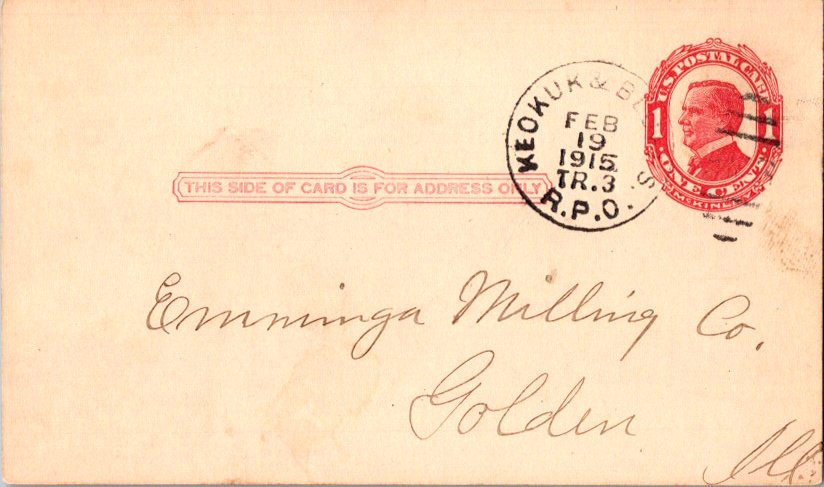 U.S. POSTAL CARD
1 1
ONE CENT
McKINLEY
KEOKUK &
FEB
19
1915
TR.3
R.P.O.
THIS SIDE OF CARD IS FOR ADDRESS ONLY
Emminga Milling Co.
Golden
Ill.